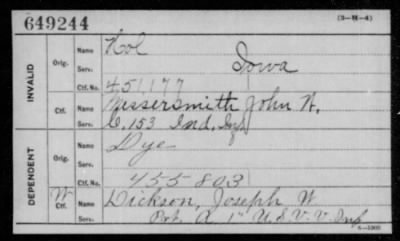 649244 (3-M-4)
INVALID
Orig. Name Kol
Serv. Iowa
Ctf. No. 451,177
Ctf. Name Messersmith John H.
Serv. C. 153 Ind. Inf
DEPENDENT
Orig. Name Dye
Serv.
Ctf. No. 455803
W Ctf. Name Dickson, Joseph W
Serv. Pvt. A 1" U.S.V.V. Inf